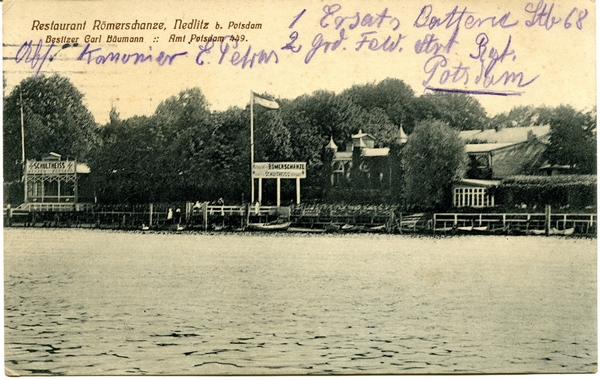 Restaurant Römerschanze, Nedlitz b. Potsdam
Besitzer Carl Bäumann :: Amt Potsdam 449.
Abs. Kanonier E. Petras
1 Ersatz Batterie Stb 68
2 grd. Feld. Art. Rgt.
Potsdam
SCHULTHEISS
RÖMERSCHANZE
SCHULTHEISS